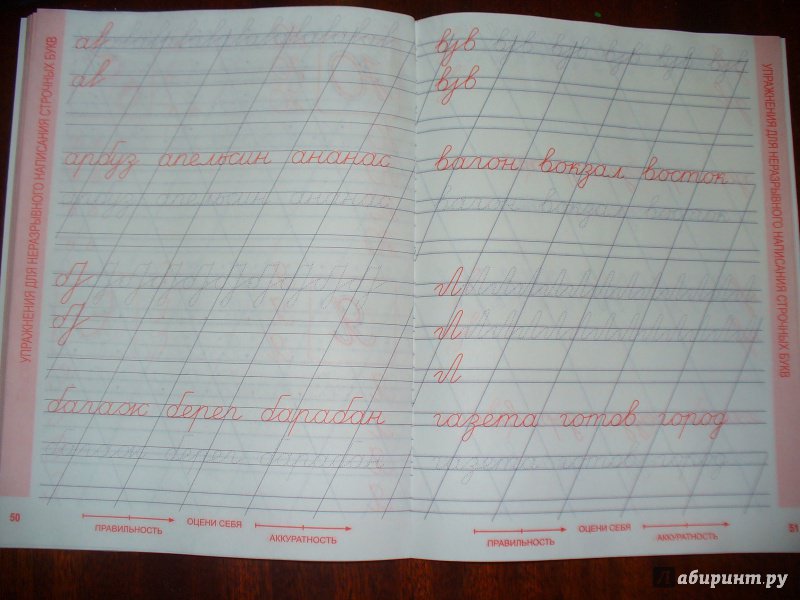 УПРАЖНЕНИЯ ДЛЯ НЕРАЗРЫВНОГО НАПИСАНИЯ СТРОЧНЫХ БУКВ
ав
ав
арбуз апельсин ананас
арбуз апельсин ананас
багаж берег барабан
багаж берег барабан
50
ПРАВИЛЬНОСТЬ
ОЦЕНИ СЕБЯ
АККУРАТНОСТЬ
вагон вокзал восток
вагон вокзал восток
газета готов город
газета готов город
51
ПРАВИЛЬНОСТЬ
ОЦЕНИ СЕБЯ
АККУРАТНОСТЬ
УПРАЖНЕНИЯ ДЛЯ НЕРАЗРЫВНОГО НАПИСАНИЯ СТРОЧНЫХ БУКВ
Лабиринт.ру